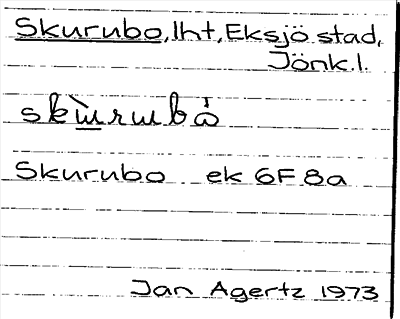 Skurubo, lht, Eksjö stad,
Jönk.l.
skùrubȧ
Skurubo ek 6F 8a
Jan Agertz 1973